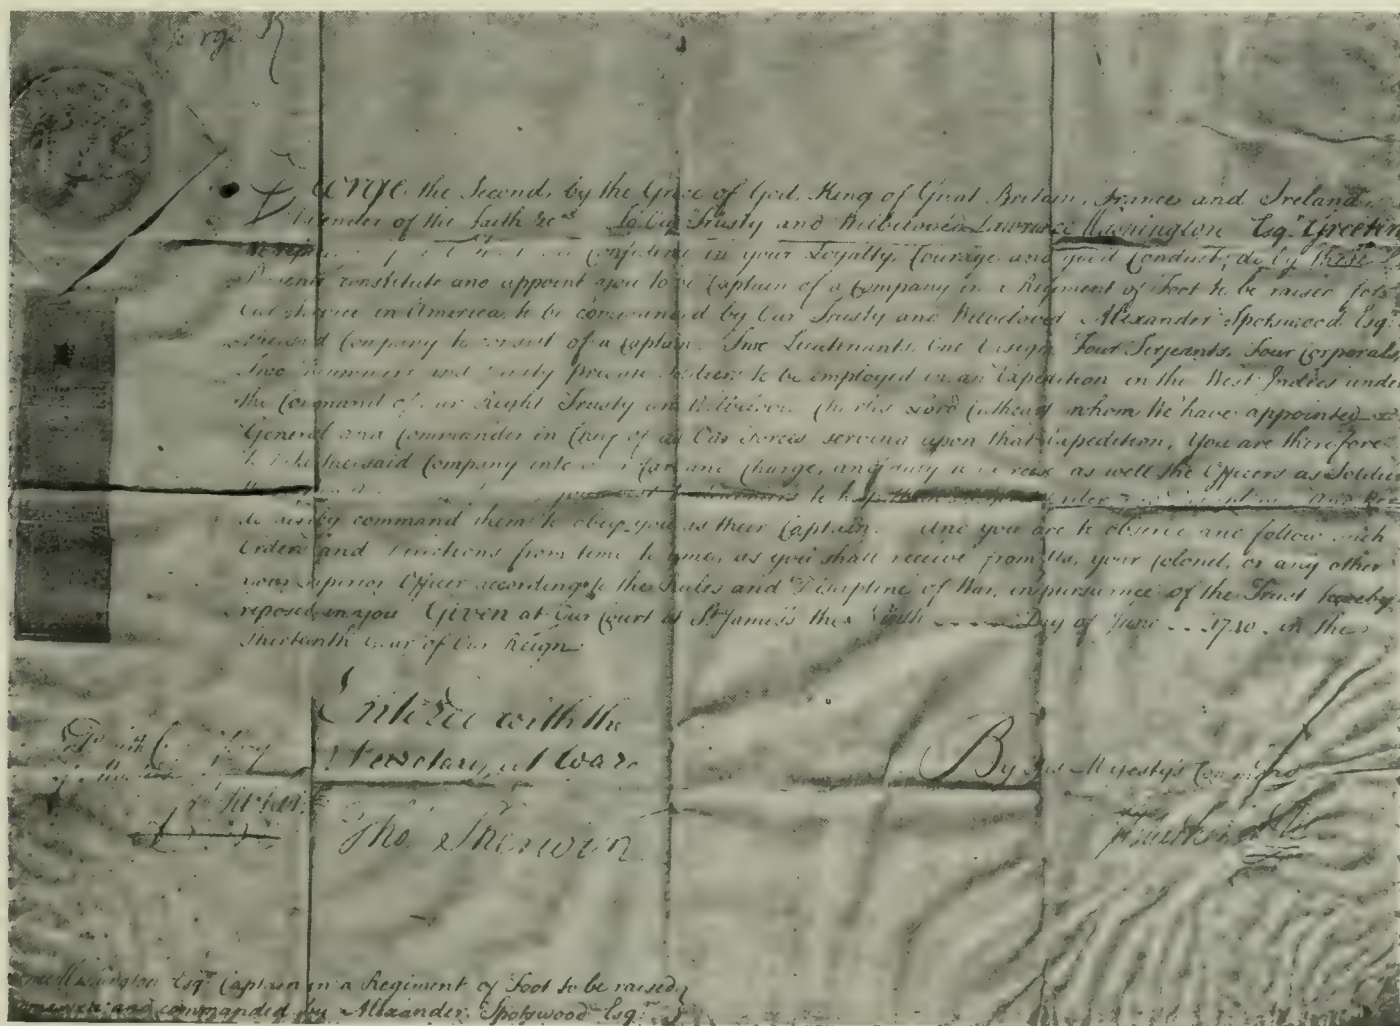 George R
George the Second, by the Grace of God, King of Great Britain, France and Ireland,
Defender of the Faith &c. To Our Trusty and Welbeloved Lawrence Washington Esqr. Greeting
in your Loyalty, Courage and good Conduct, do by these
Presents constitute and appoint you to be Captain of a Company in a Regiment of Foot to be raised for
Our Service in America, to be commanded by Our Trusty and Welbeloved Alexander Spotswood Esqr.
Company to consist of a Captain, Two Lieutenants, One Ensign, Four Serjeants, Four Corporals,
Two Drummers and Private Soldiers to be employed in an Expedition in the West Indies under
the Command of Our Right Trusty and Welbeloved Charles Lord Cathcart whom We have appointed
General and Commander in Chief of all Our Forces serving upon that Expedition, You are therefore
to take the said Company into Your Care and Charge, and duly to exercise as well the Officers as Soldiers
to keep them in Order and
do hereby command them to obey you as their Captain. And you are to observe and follow such
Orders and Directions from time to time, as you shall receive from Us, your Colonel, or any other
your Superior Officer according to the Rules and Discipline of War, in pursuance of the Trust hereby
reposed in you Given at Our Court at St. James's the Day of June 1740. in the
Thirteenth Year of Our Reign
Entered with the
Secretary at War
Tho. Sherwin
By His Majesty's Command
Washington Esqr. Captain in a Regiment of Foot to be raised
America and commanded by Alexander Spotswood Esqr.